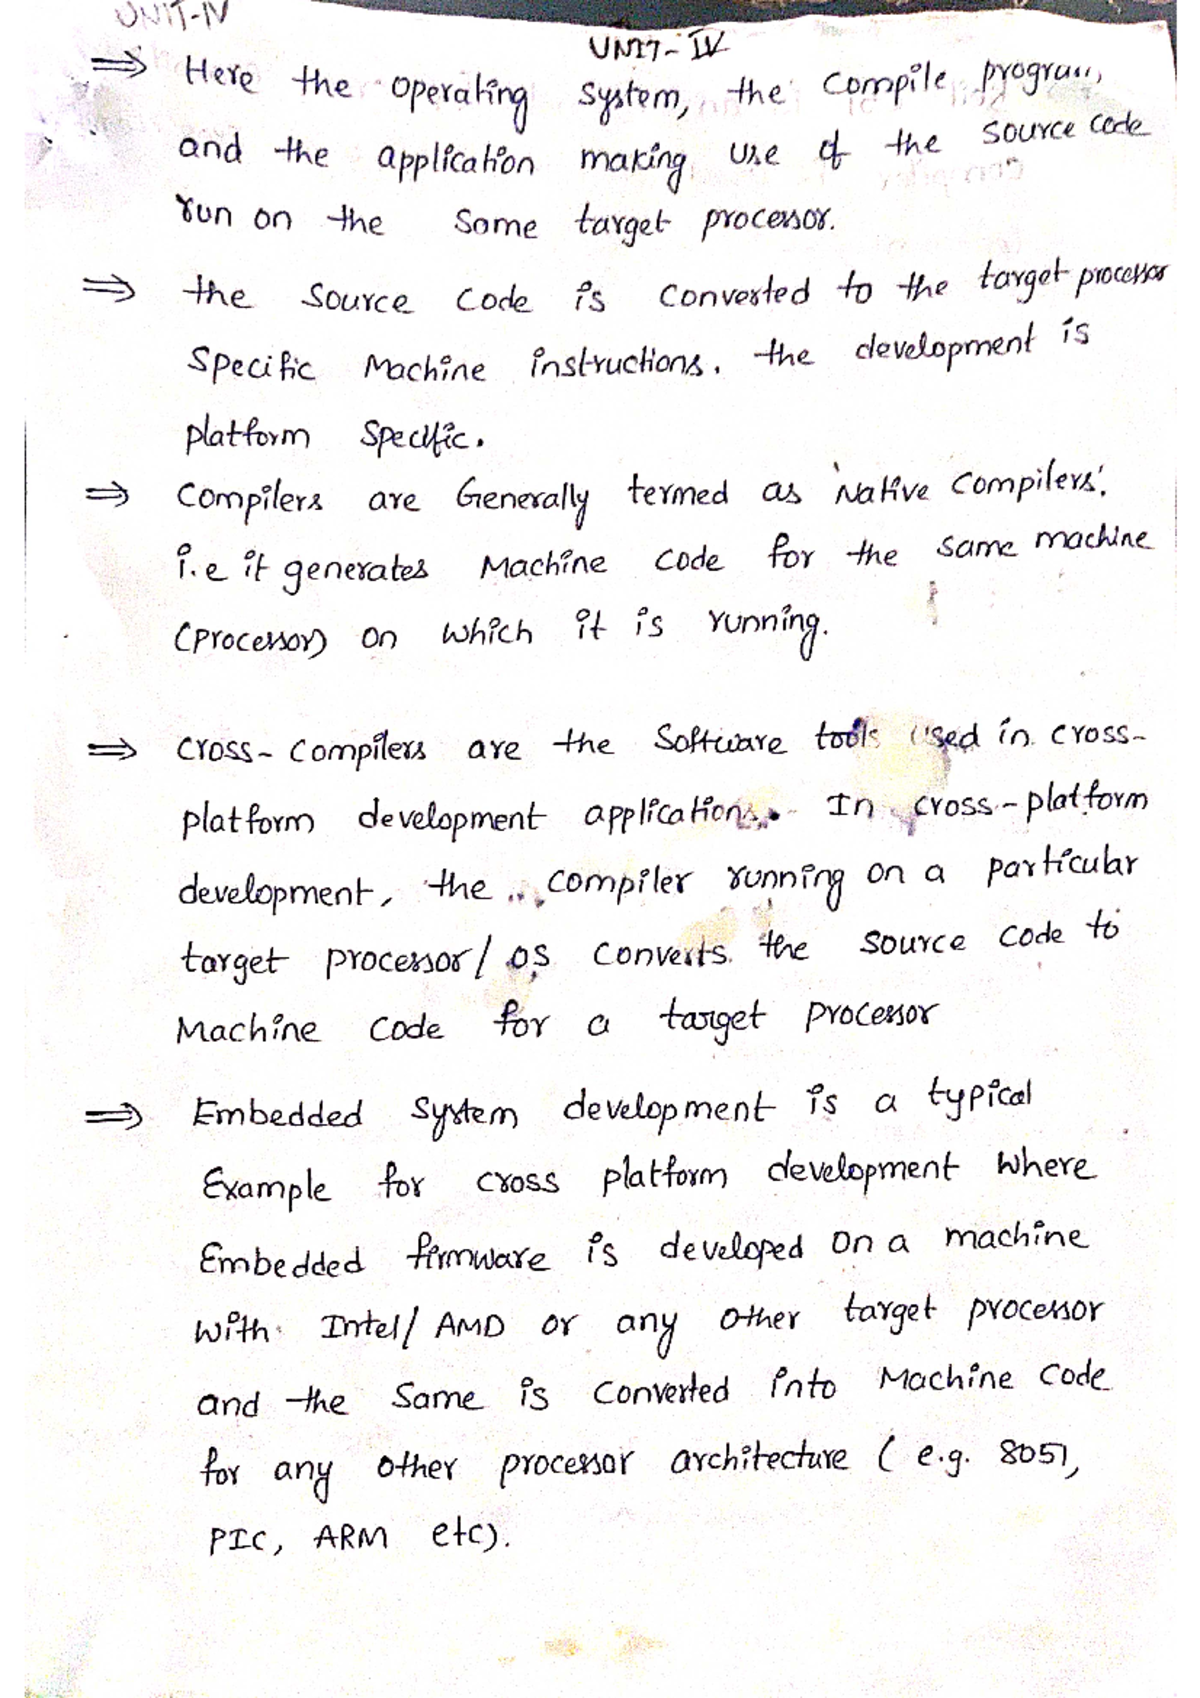 UNIT-IV
UNIT-IV
⇒ Here the operating system, the compile program,
and the application making use of the source code
run on the same target processor.
⇒ the source code is converted to the target processor
specific Machine instructions. the development is
platform specific.
⇒ Compilers are Generally termed as 'Native Compilers'.
i.e it generates Machine code for the same machine
(processor) on which it is running.
⇒ cross-compilers are the software tools used in cross-
platform development applications. In cross-platform
development, the compiler running on a particular
target processor/ OS converts the source code to
Machine code for a target processor
⇒ Embedded system development is a typical
Example for cross platform development where
Embedded firmware is developed on a machine
with Intel/ AMD or any other target processor
and the same is converted into Machine code
for any other processor architecture (e.g. 8051,
PIC, ARM etc).